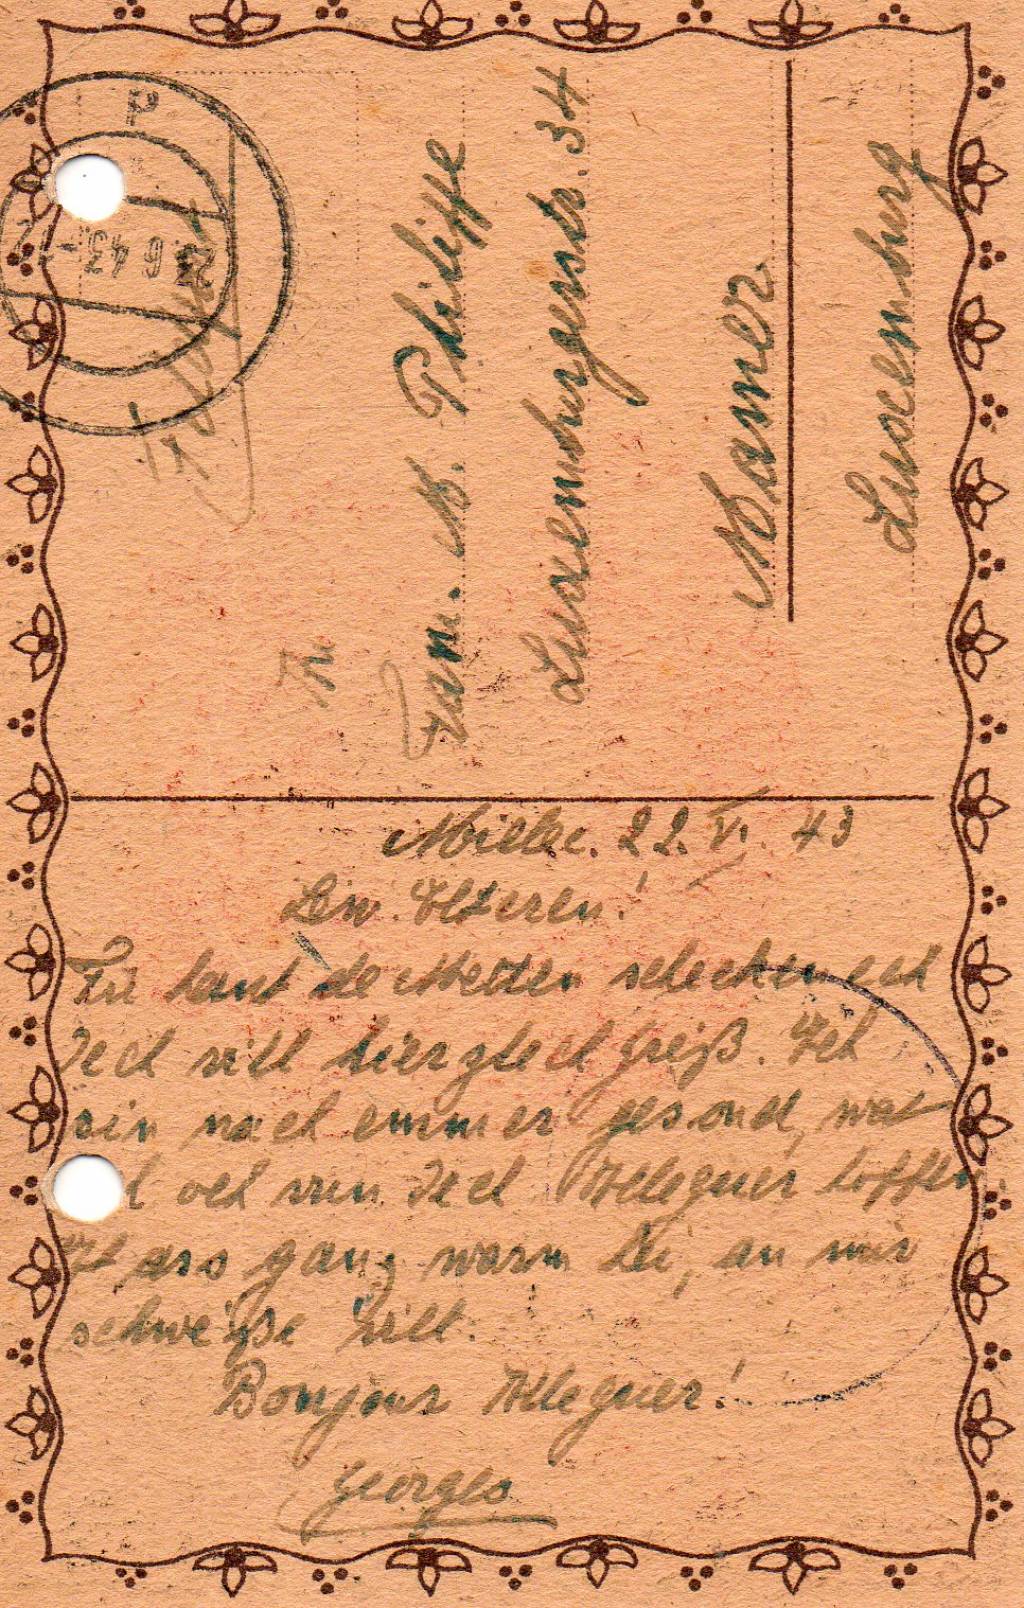 Feldpost
Fir
Fam. M. Philippe
Luxemburgerstr. 34
Mamer
Luxemburg
Mielec. 22. V. 43
Lew Elteren!
Fir haut de Metten schecken ech
Iech vill hierzlech Greiß. Ech
sin nach emmer gesond, wat
ech och vun Iech Alleguer hoffen.
Et ass ganz warm hei, an mir
schweßen vill.
Bonjour Alleguer!
Georges
P
23. 6. 43